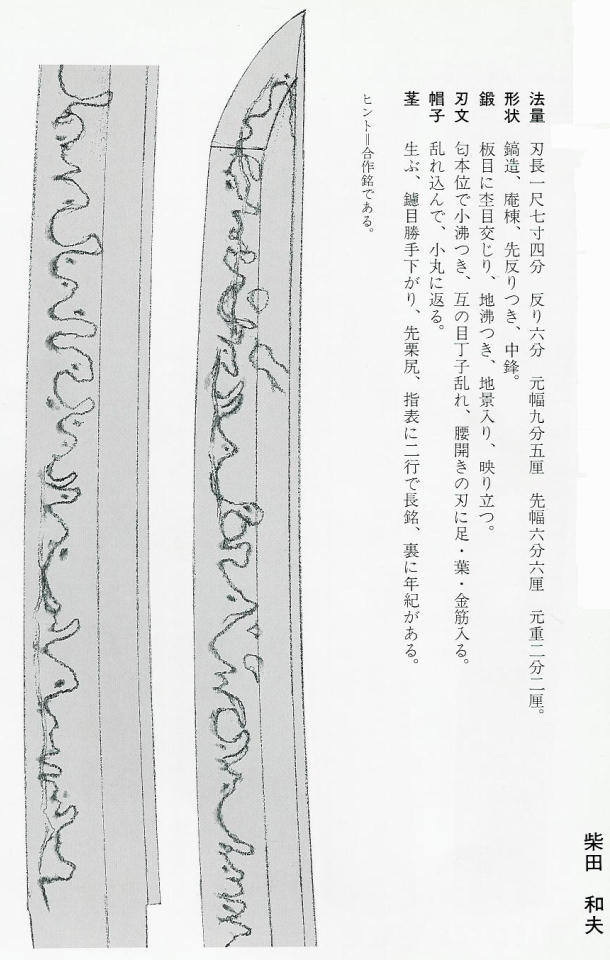 法量 刃長一尺七寸四分 反り六分 元幅九分五厘 先幅六分六厘 元重二分二厘。
形状 鎬造、庵棟、先反りつき、中鋒。
鍛 板目に杢目交じり、地沸つき、地景入り、映り立つ。
刃文 匂本位で小沸つき、互の目丁子乱れ、腰開きの刃に足・葉・金筋入る。
帽子 乱れ込んで、小丸に返る。
茎 生ぶ、鑢目勝手下がり、先栗尻、指表に二行で長銘、裏に年紀がある。
ヒント＝合作銘である。
柴田 和夫